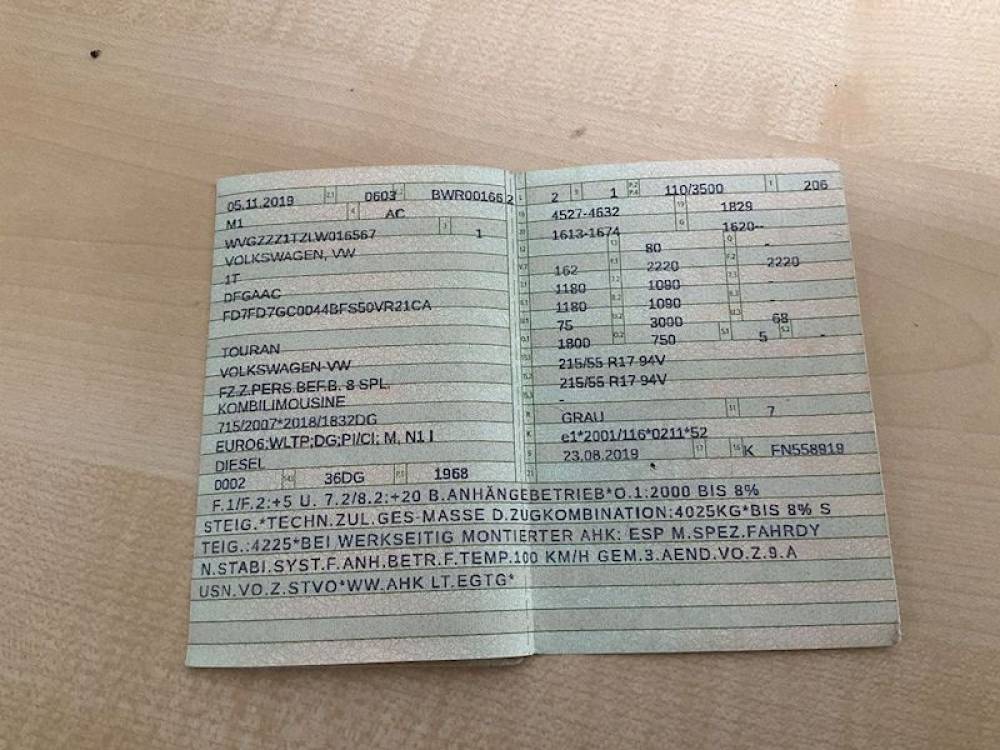 05.11.2019 0603 BWR00166 2
M1 AC
WVGZZZ1TZLW016567 1
VOLKSWAGEN, VW
1T
DFGAAC
FD7FD7GC0044BFS50VR21CA
TOURAN
VOLKSWAGEN-VW
FZ.Z.PERS.BEF.B. 8 SPL.
KOMBILIMOUSINE
715/2007*2018/1832DG
EURO6;WLTP;DG;PI/CI; M, N1 I
DIESEL
0002 36DG 1968
2 1 110/3500 206
4527-4632 1829
1613-1674 1620--
80 -
162 2220 2220
1180 1090 -
1180 1090 -
75 3000 68
1800 750 5 -
215/55 R17 94V
215/55 R17 94V
-
GRAU 7
e1*2001/116*0211*52
23.08.2019 K FN558919
F.1/F.2:+5 U. 7.2/8.2:+20 B.ANHÄNGEBETRIEB*O.1:2000 BIS 8%
STEIG.*TECHN.ZUL.GES-MASSE D.ZUGKOMBINATION:4025KG*BIS 8% S
TEIG.:4225*BEI WERKSEITIG MONTIERTER AHK: ESP M.SPEZ.FAHRDY
N.STABI.SYST.F.ANH.BETR.F.TEMP.100 KM/H GEM.3.AEND.VO.Z.9.A
USN.VO.Z.STVO*WW.AHK LT.EGTG*